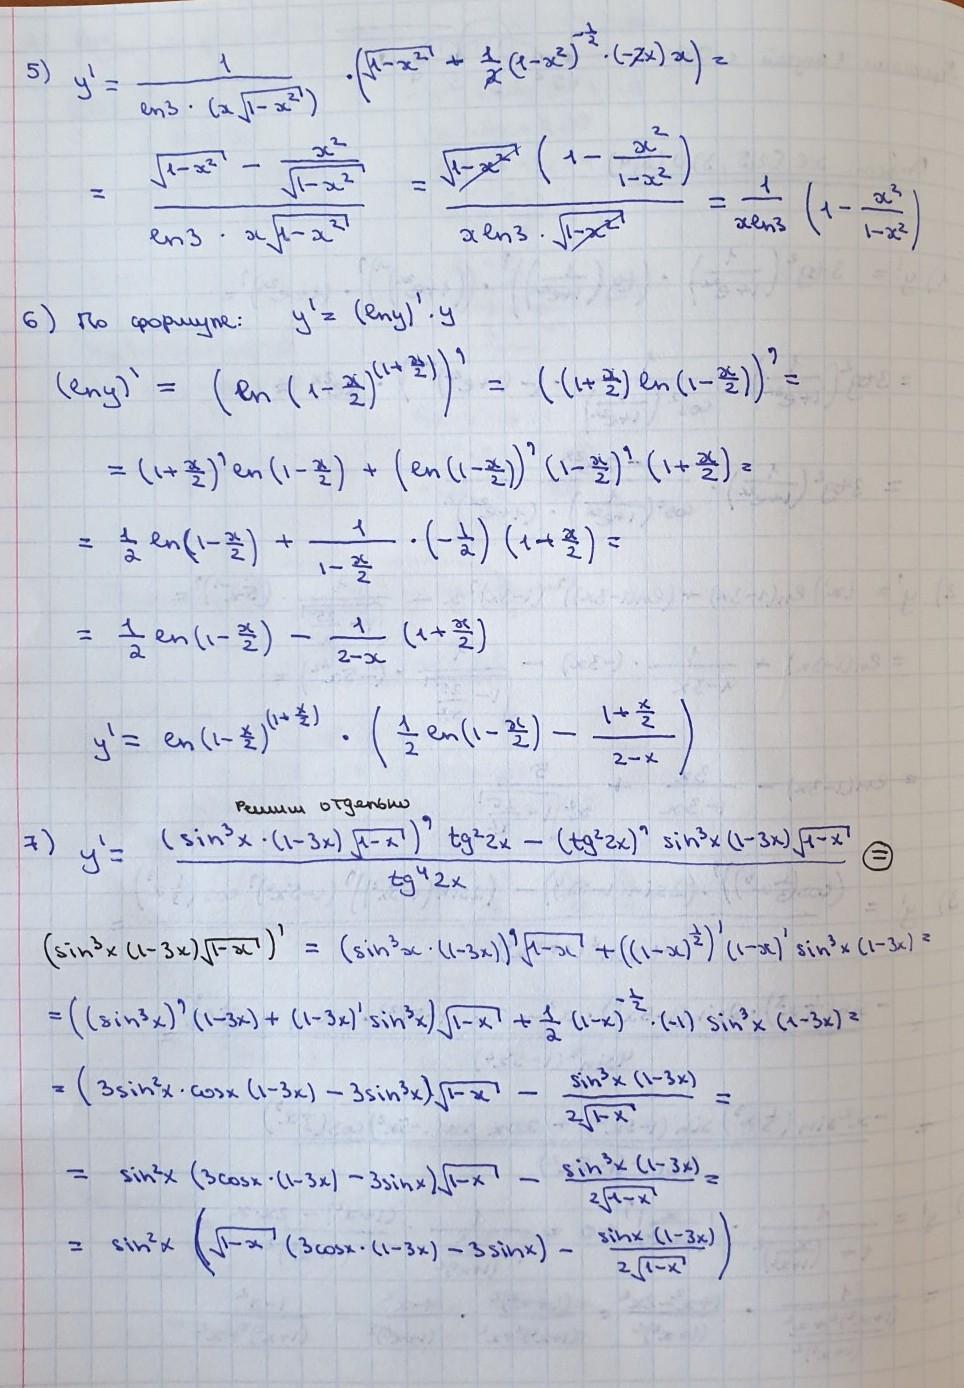 5) y' = 1/(ln3 · (x√(1-x²))) · (√(1-x²) + 1/2 (1-x²)^(-1/2) · (-2x) x) =
= (√(1-x²) - x²/√(1-x²))/(ln3 · x√(1-x²)) = (√(1-x²) (1 - x²/(1-x²)))/(x ln3 · √(1-x²)) = 1/(x ln3) (1 - x²/(1-x²))
6) По формуле: y' = (lny)' · y
(lny)' = (ln (1-x/2)^(1+x/2))' = ((1+x/2) ln(1-x/2))' =
= (1+x/2)' ln(1-x/2) + (ln(1-x/2))' (1-x/2)' · (1+x/2) =
= 1/2 ln(1-x/2) + 1/(1-x/2) · (-1/2) (1+x/2) =
= 1/2 ln(1-x/2) - 1/(2-x) (1+x/2)
y' = ln(1-x/2)^(1+x/2) · (1/2 ln(1-x/2) - (1+x/2)/(2-x))
Решим отдельно
7) y' = ((sin³x · (1-3x)√(1-x))' tg²2x - (tg²2x)' sin³x (1-3x)√(1-x))/(tg⁴2x) =
(sin³x (1-3x)√(1-x))' = (sin³x · (1-3x))'√(1-x) + ((1-x)^(1/2))' (1-x)' sin³x (1-3x) =
= ((sin³x)' (1-3x) + (1-3x)' sin³x)√(1-x) + 1/2 (1-x)^(-1/2) · (-1) sin³x (1-3x) =
= (3sin²x · cosx (1-3x) - 3sin³x)√(1-x) - (sin³x (1-3x))/(2√(1-x)) =
= sin²x (3cosx · (1-3x) - 3sinx)√(1-x) - (sin³x (1-3x))/(2√(1-x)) =
= sin²x (√(1-x) (3cosx · (1-3x) - 3sinx) - (sinx (1-3x))/(2√(1-x)))